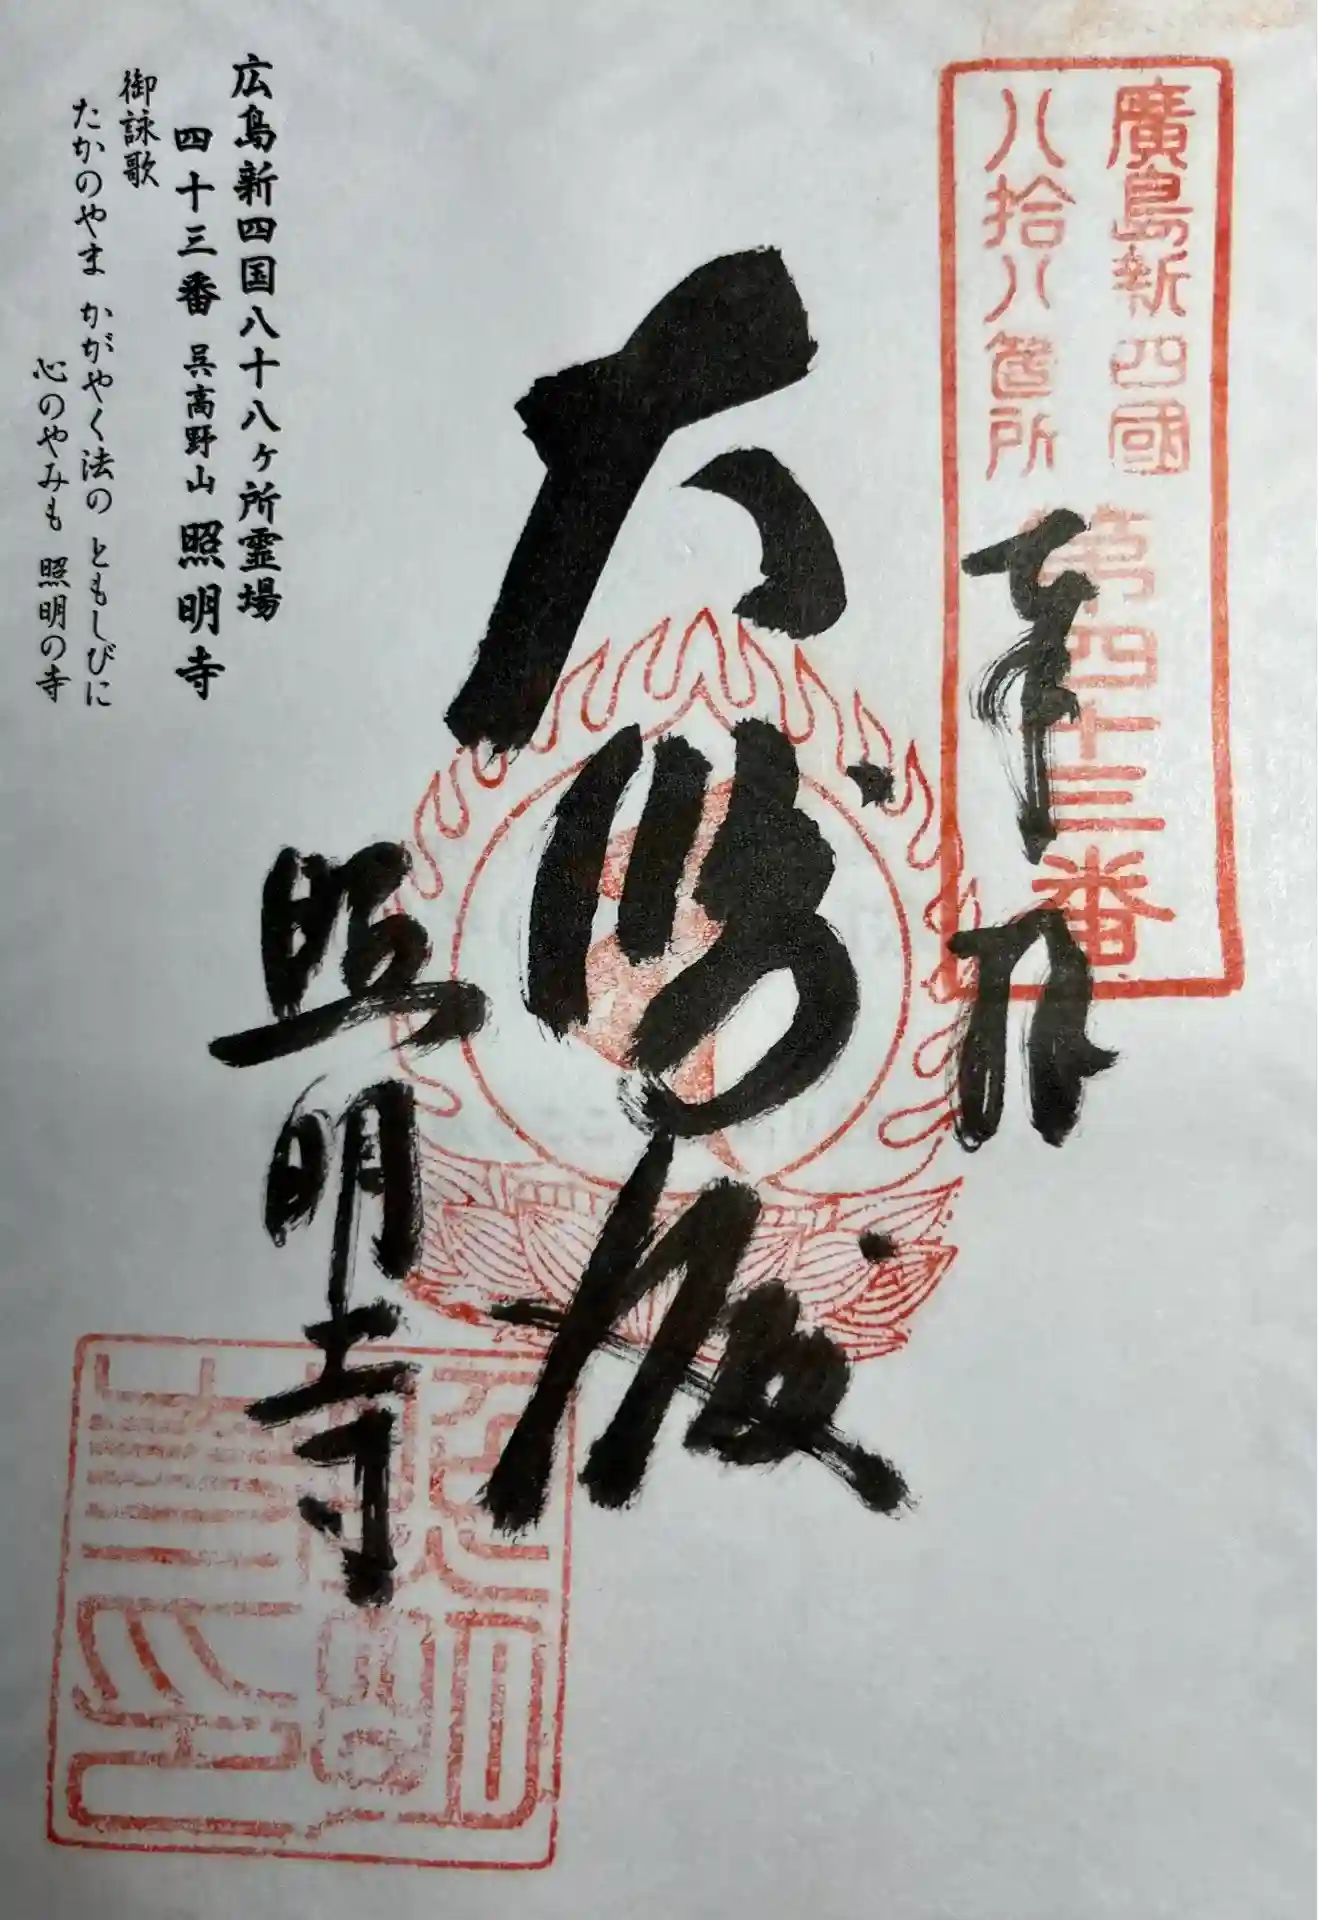 廣島新四國
八拾八箇所
第四十三番
照明寺
広島新四国八十八ヶ所霊場
四十三番 呉高野山 照明寺
御詠歌
たかのやま かがやく法の ともしびに
心のやみも 照明の寺